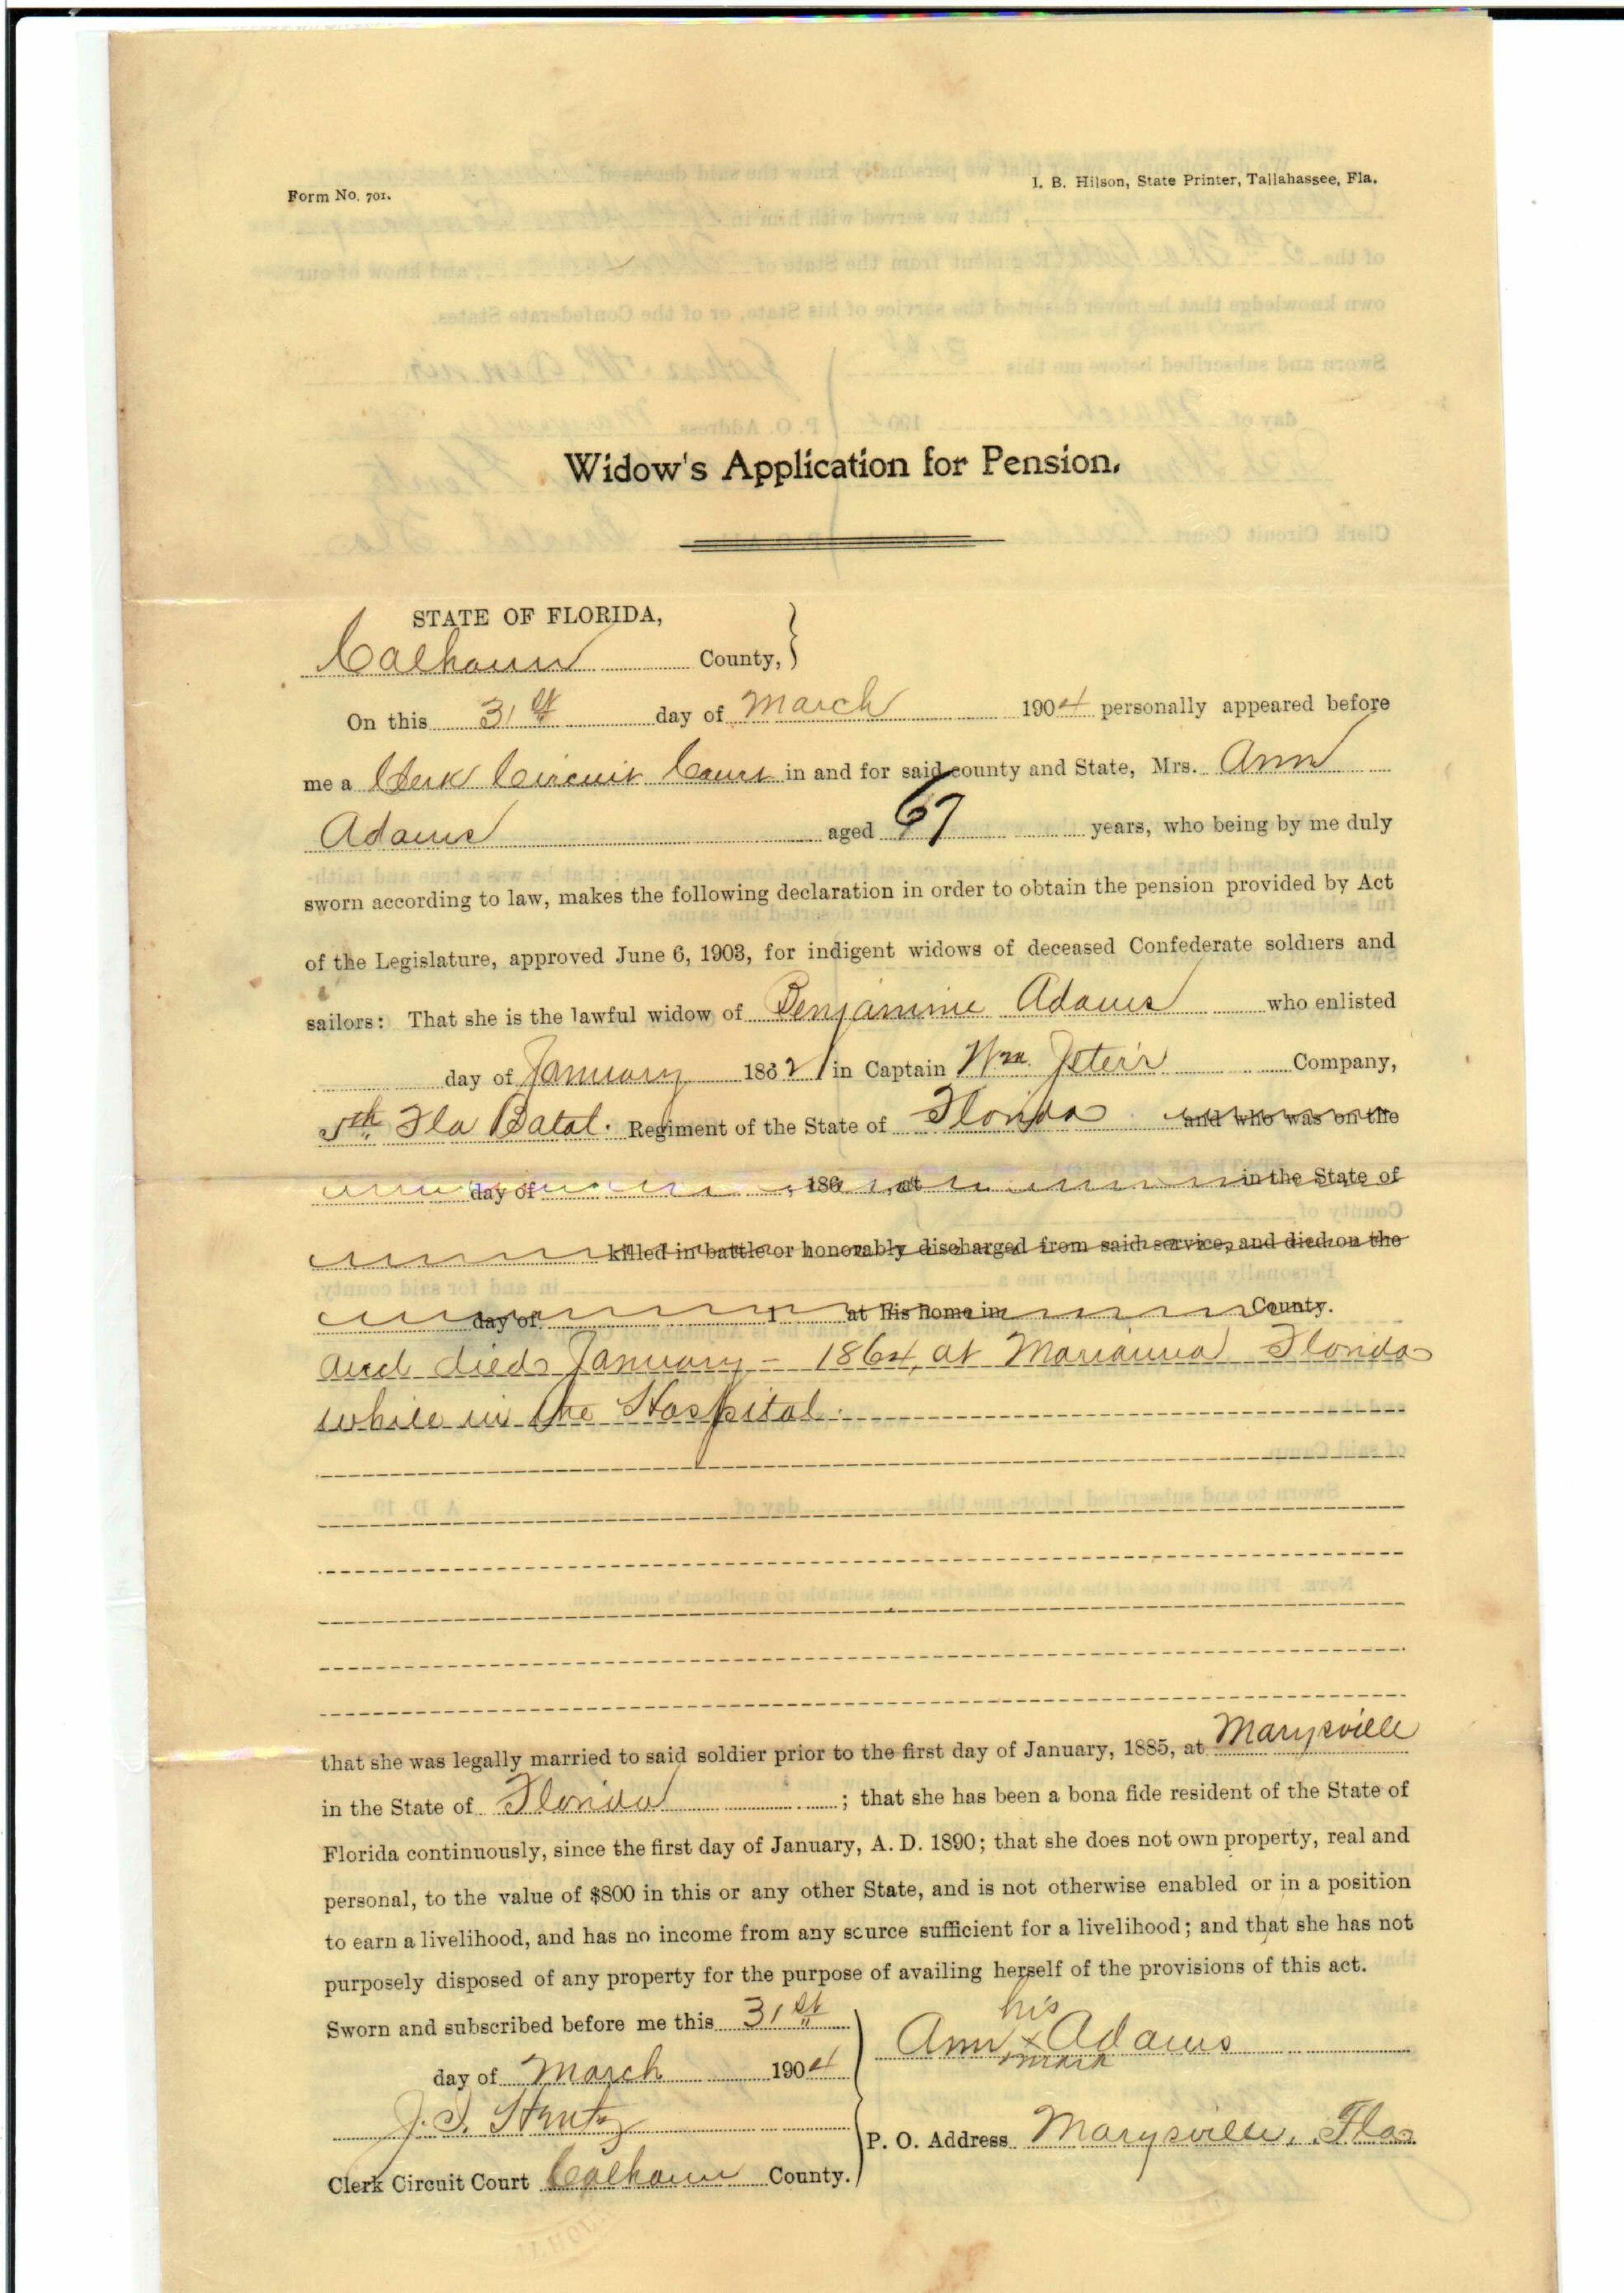 Form No. 701.
I. B. Hilson, State Printer, Tallahassee, Fla.
Widow's Application for Pension.
STATE OF FLORIDA,
Calhoun County,
On this 31st day of March 1904 personally appeared before
me a Clerk Circuit Court in and for said county and State, Mrs. Ann
Adams aged 67 years, who being by me duly
sworn according to law, makes the following declaration in order to obtain the pension provided by Act
of the Legislature, approved June 6, 1903, for indigent widows of deceased Confederate soldiers and
sailors: That she is the lawful widow of Benjamine Adams who enlisted
day of January 1862 in Captain Wm. Jeter's Company,
5th Fla Batal. Regiment of the State of Florida and who was on the
day of , 186 , at in the State of
killed in battle or honorably discharged from said service, and died on the
day of 1 at his home in County.
and died January - 1864, at Marianna Florida
while in the Hospital.
that she was legally married to said soldier prior to the first day of January, 1885, at Marysville
in the State of Florida ; that she has been a bona fide resident of the State of
Florida continuously, since the first day of January, A. D. 1890; that she does not own property, real and
personal, to the value of $800 in this or any other State, and is not otherwise enabled or in a position
to earn a livelihood, and has no income from any source sufficient for a livelihood; and that she has not
purposely disposed of any property for the purpose of availing herself of the provisions of this act.
Sworn and subscribed before me this 31st
day of March 1904
his
Ann x Adams
mark
P. O. Address Marysville, Fla
Clerk Circuit Court Calhoun County.